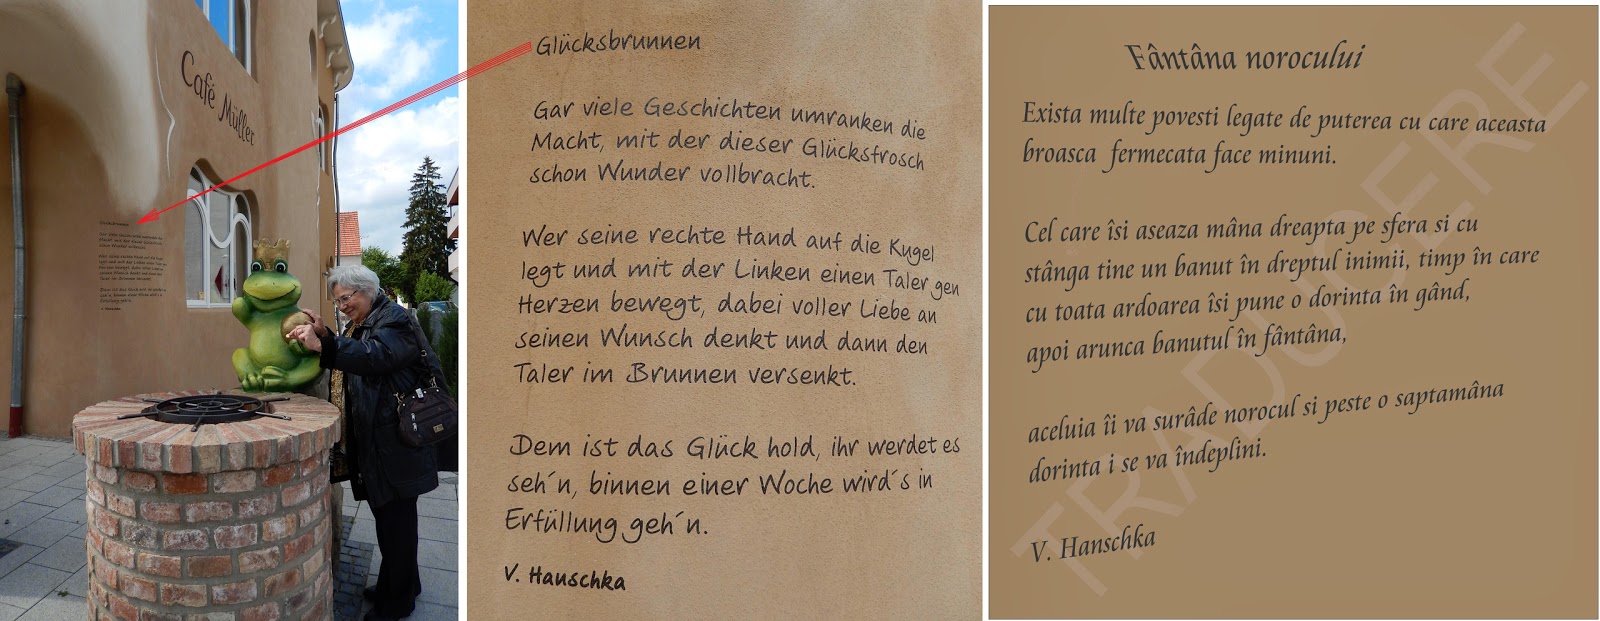 Café Müller
Glücksbrunnen
Gar viele Geschichten umranken die
Macht, mit der dieser Glücksfrosch
schon Wunder vollbracht.
Wer seine rechte Hand auf die Kugel
legt und mit der Linken einen Taler gen
Herzen bewegt, dabei voller Liebe an
seinen Wunsch denkt und dann den
Taler im Brunnen versenkt.
Dem ist das Glück hold, ihr werdet es
seh´n, binnen einer Woche wird´s in
Erfüllung geh´n.
V. Hauschka
Fântâna norocului
Exista multe povesti legate de puterea cu care aceasta
broasca fermecata face minuni.
Cel care îsi aseaza mâna dreapta pe sfera si cu
stânga tine un banut în dreptul inimii, timp în care
cu toata ardoarea îsi pune o dorinta în gând,
apoi arunca banutul în fântâna,
aceluia îi va surâde norocul si peste o saptamâna
dorinta i se va îndeplini.
V. Hanschka
TRADUCERE